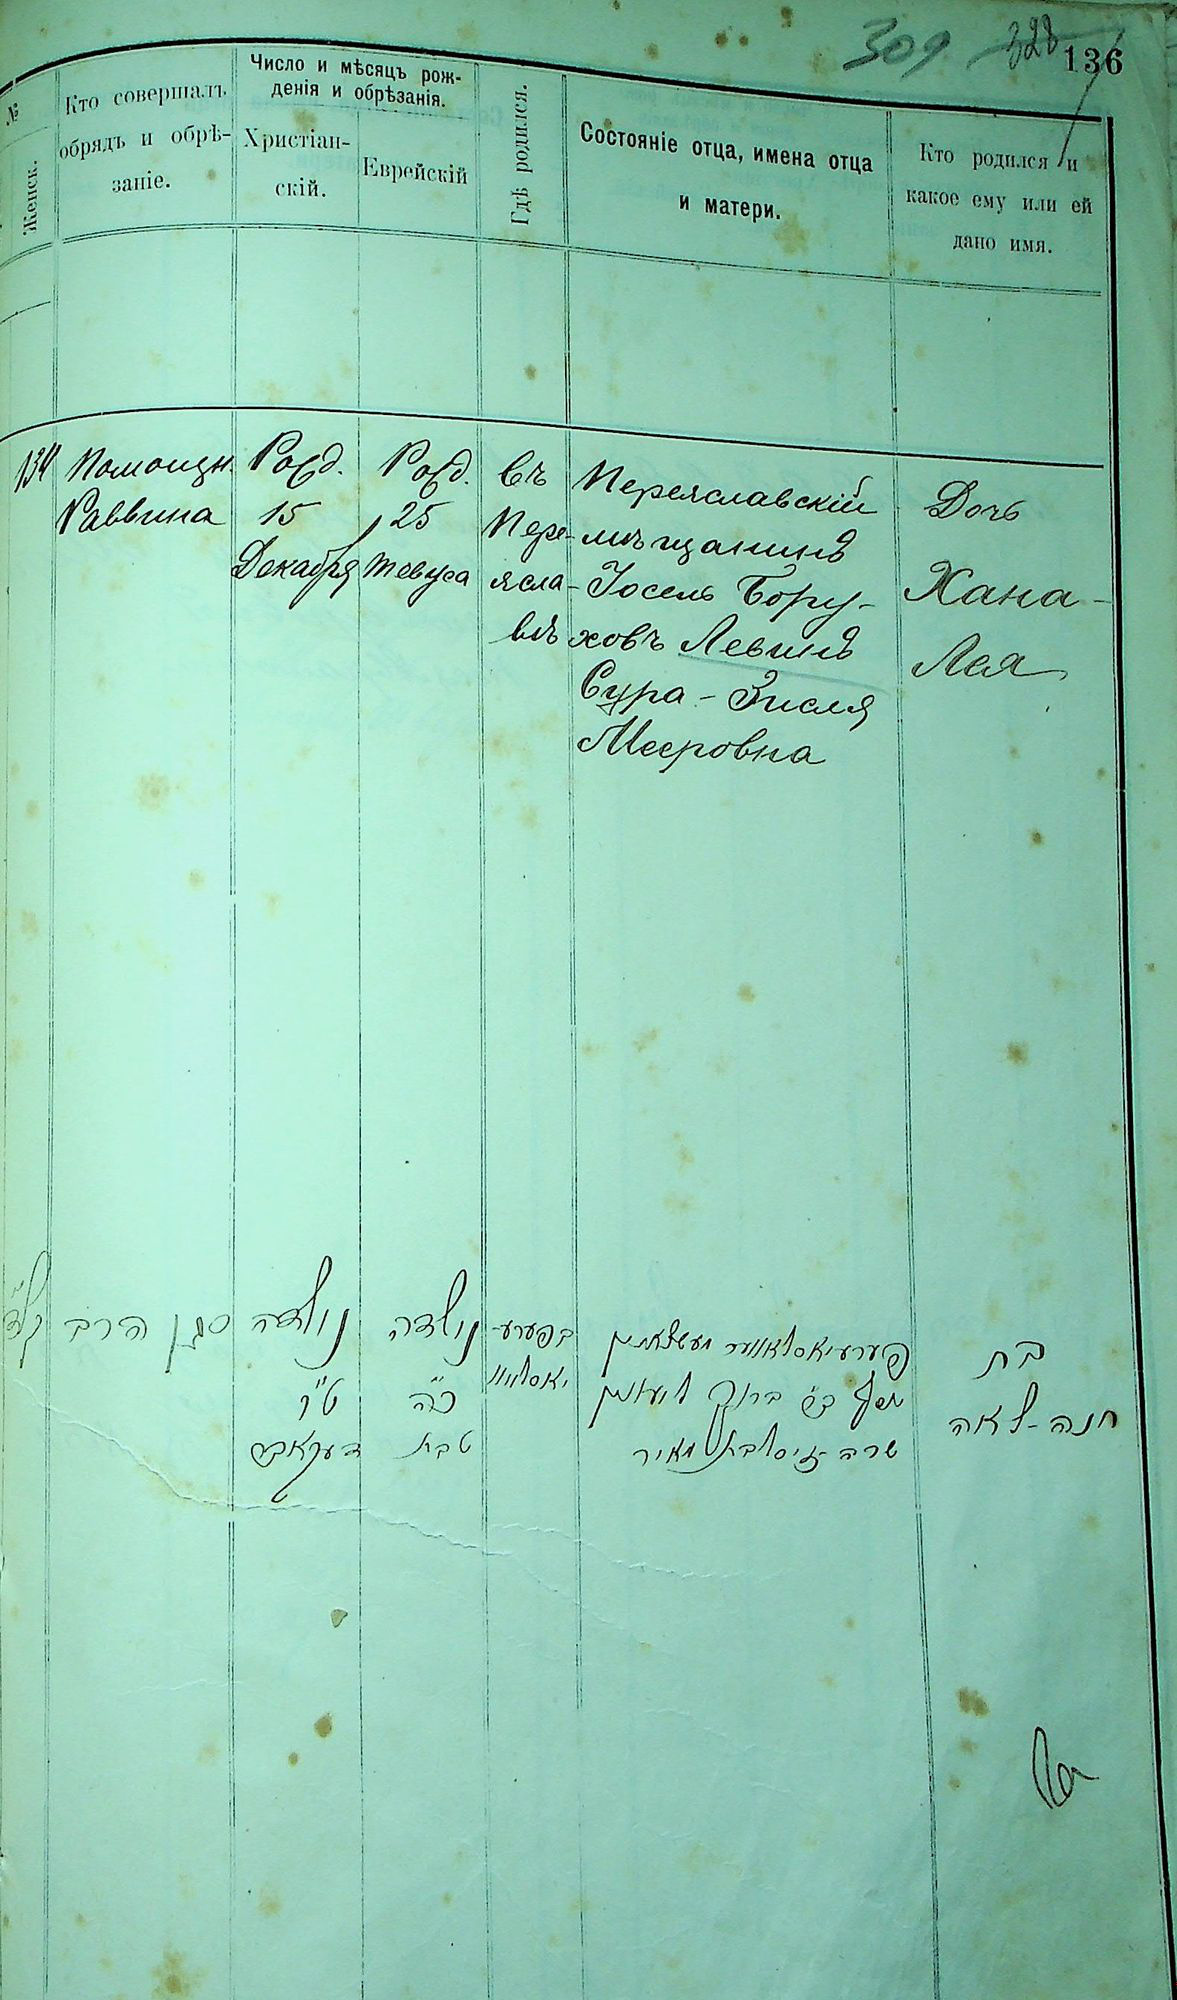 309 328
136
№
Женск.
Кто совершалъ
обрядъ и обрѣ-
заніе.
Число и мѣсяцъ рож-
денія и обрѣзанія.
Христіан-
скій.
Еврейскій
Гдѣ родился.
Состояніе отца, имена отца
и матери.
Кто родился и
какое ему или ей
дано имя.
134
Помощн.
Раввина
Рожд.
15
Декабря
Рожд.
25
Тевуса
въ
Пере-
ясла-
влѣ
Переяславскій
мѣщанинъ
Іосель Бору-
ховъ Левинъ
Сура - Зисля
Мееровна
Дочь
Хана -
Лея
קל״ד
סגן הרב
נולדה
ט״ו
דעקאבר
נולדה
כ״ה
טבת
בפערע-
יאסלוו
פערעיאסלאווער
יוסף ב״ר ברוך לעווין
שרה-זיסל בת מאיר
בת
חנה-לאה